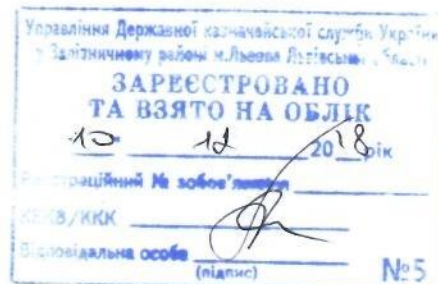 Управління Державної казначейської служби України
у Залізничному районі м.Львова Львівської області
ЗАРЕЄСТРОВАНО
ТА ВЗЯТО НА ОБЛІК
10 12 2018 рік
Реєстраційний № зобов'язання
КЕКВ/ККК
Відповідальна особа
(підпис)
№5